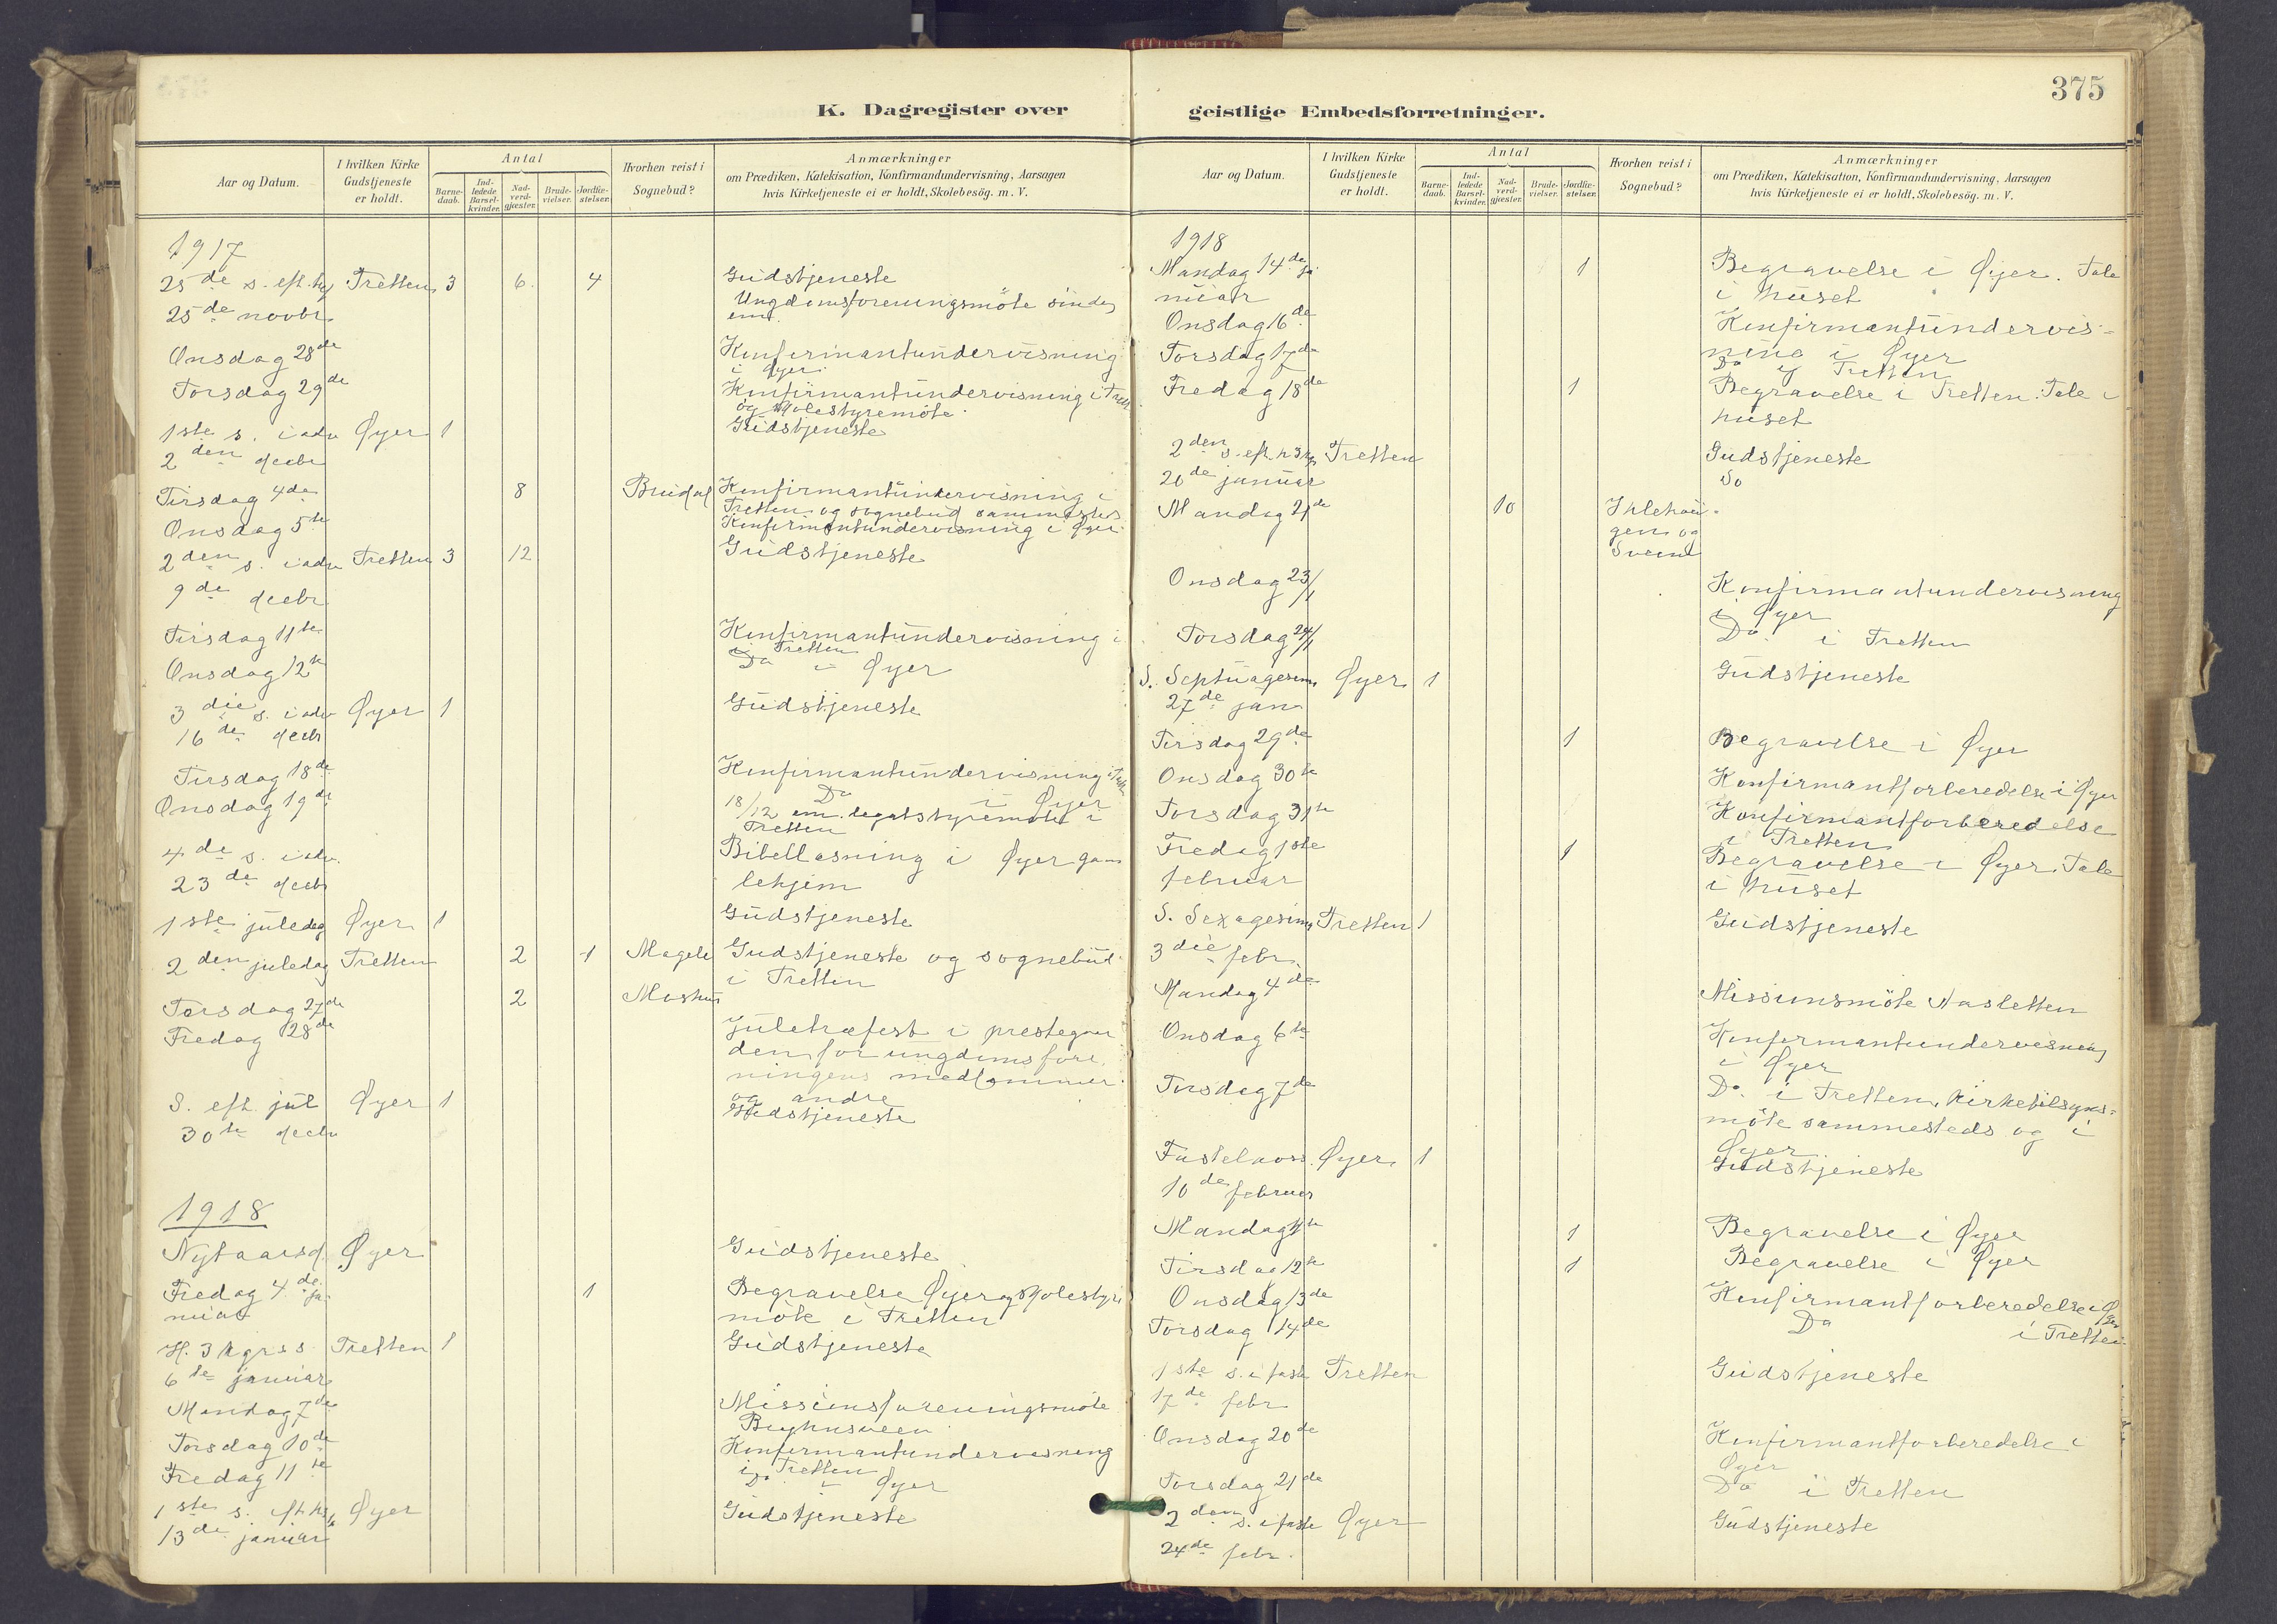 375
K. Dagregister over geistlige Embedsforretninger.
Aar og Datum.
I hvilken Kirke Gudstjeneste er holdt.
Antal
Barnedaab.
Indledede Barselkvinder.
Nadverdgjæster.
Brudevielser.
Jordfæstelser.
Hvorhen reist i Sognebud?
Anmærkninger
om Prædiken, Katekisation, Konfirmandundervisning, Aarsagen
hvis Kirketjeneste ei er holdt, Skolebesög. m. V.
1917
25de s. eft. Tretten 3 6. 4 Gudstjeneste
25de novbr. Ungdomsforeningsmöte
em.
Onsdag 28de Konfirmantundervisning
i Øyer.
Torsdag 29de Konfirmantundervisning i Trett
og skolestyremöte.
1ste s. i adv Øyer 1 Gudstjeneste
2den decbr
Tirsdag 4de 8 Konfirmantundervisning i
Tretten og sognebud sammesteds
Onsdag 5te Konfirmantundervisning i Øyer.
2den s. i adv Tretten 3 12 Gudstjeneste
9de decbr
Tirsdag 11te Konfirmantundervisning i
Tretten
Onsdag 12te Do i Øyer
3die s. i adv Øyer 1 Gudstjeneste
16de decbr
Tirsdag 18de Konfirmantundervisning i Trett
Onsdag 19de Do i Øyer
18/12 em. legatstyremöte i
Tretten
4de s. i adv. Bibellæsning i Øyer gam
23de decbr lehjem
1ste juledag Øyer 1 Gudstjeneste
2den juledag Tretten 2 1 Magele Gudstjeneste og sognebud
i Tretten
Torsdag 27de 2 Moshus
Fredag 28de Juletræfest i prestegaar
den for ungdomsfore
ningens medlemmer
og andre
S. eft. jul Øyer 1 Gudstjeneste
30te decbr
1918
Nytaarsd. Øyer Gudstjeneste
Fredag 4de ja- 1 Begravelse Øyer og skolestyre
nuar möte i Tretten
H. 3 kgrs s Tretten 1 Gudstjeneste
6te januar
Mandag 7de Missionsforeningsmöte
Torsdag 10de Konfirmantundervisning
i Tretten
Fredag 11te Do i Øyer
1ste s. eft. Øyer Gudstjeneste
13de januar
K. Dagregister over geistlige Embedsforretninger.
Aar og Datum.
I hvilken Kirke Gudstjeneste er holdt.
Antal
Barnedaab.
Indledede Barselkvinder.
Nadverdgjæster.
Brudevielser.
Jordfæstelser.
Hvorhen reist i Sognebud?
Anmærkninger
om Prædiken, Katekisation, Konfirmandundervisning, Aarsagen
hvis Kirketjeneste ei er holdt, Skolebesög. m. V.
1918
Mandag 14de ja 1 Begravelse i Øyer. Tale
nuar i huset
Onsdag 16de Konfirmantundervis-
ning i Øyer
Torsdag 17de Do i Tretten
Fredag 18de 1 Begravelse i Tretten. Tale i
huset
2den s. eft. h 3 kgr Tretten Gudstjeneste
20de januar Do
Mandag 21de 10 Ihlehau-
gen og
Sveine
Onsdag 23/1 Konfirmantundervisning
i Øyer
Torsdag 24/1 Do i Tretten
S. Septuagesima Øyer 1 Gudstjeneste
27de jan
Tirsdag 29de 1 Begravelse i Øyer
Onsdag 30te Konfirmantforberedelse i Øyer
Torsdag 31te Konfirmantforberedelse
i Tretten
Fredag 1ste 1 Begravelse i Øyer. Tale
februar i huset
S. Sexagesima Tretten 1 Gudstjeneste
3die febr.
Mandag 4de Missionsmöte Aasletten
Onsdag 6te Konfirmantundervisning
i Øyer
Torsdag 7de Do. i Tretten, kirketilsyns-
möte sammesteds og i
Øyer
Fastelavss. Øyer 1 Gudstjeneste
10de februar
Mandag 11te 1 Begravelse i Øyer
Tirsdag 12te 1 Begravelse i Øyer
Onsdag 13de Konfirmantforberedelse i Øyer
Torsdag 14de Do i Tretten
1ste s. i faste Tretten Gudstjeneste
17de febr
Onsdag 20de Konfirmantforberedelse i
Øyer
Torsdag 21de Do i Tretten
2den s. i faste Øyer Gudstjeneste
24de febr.